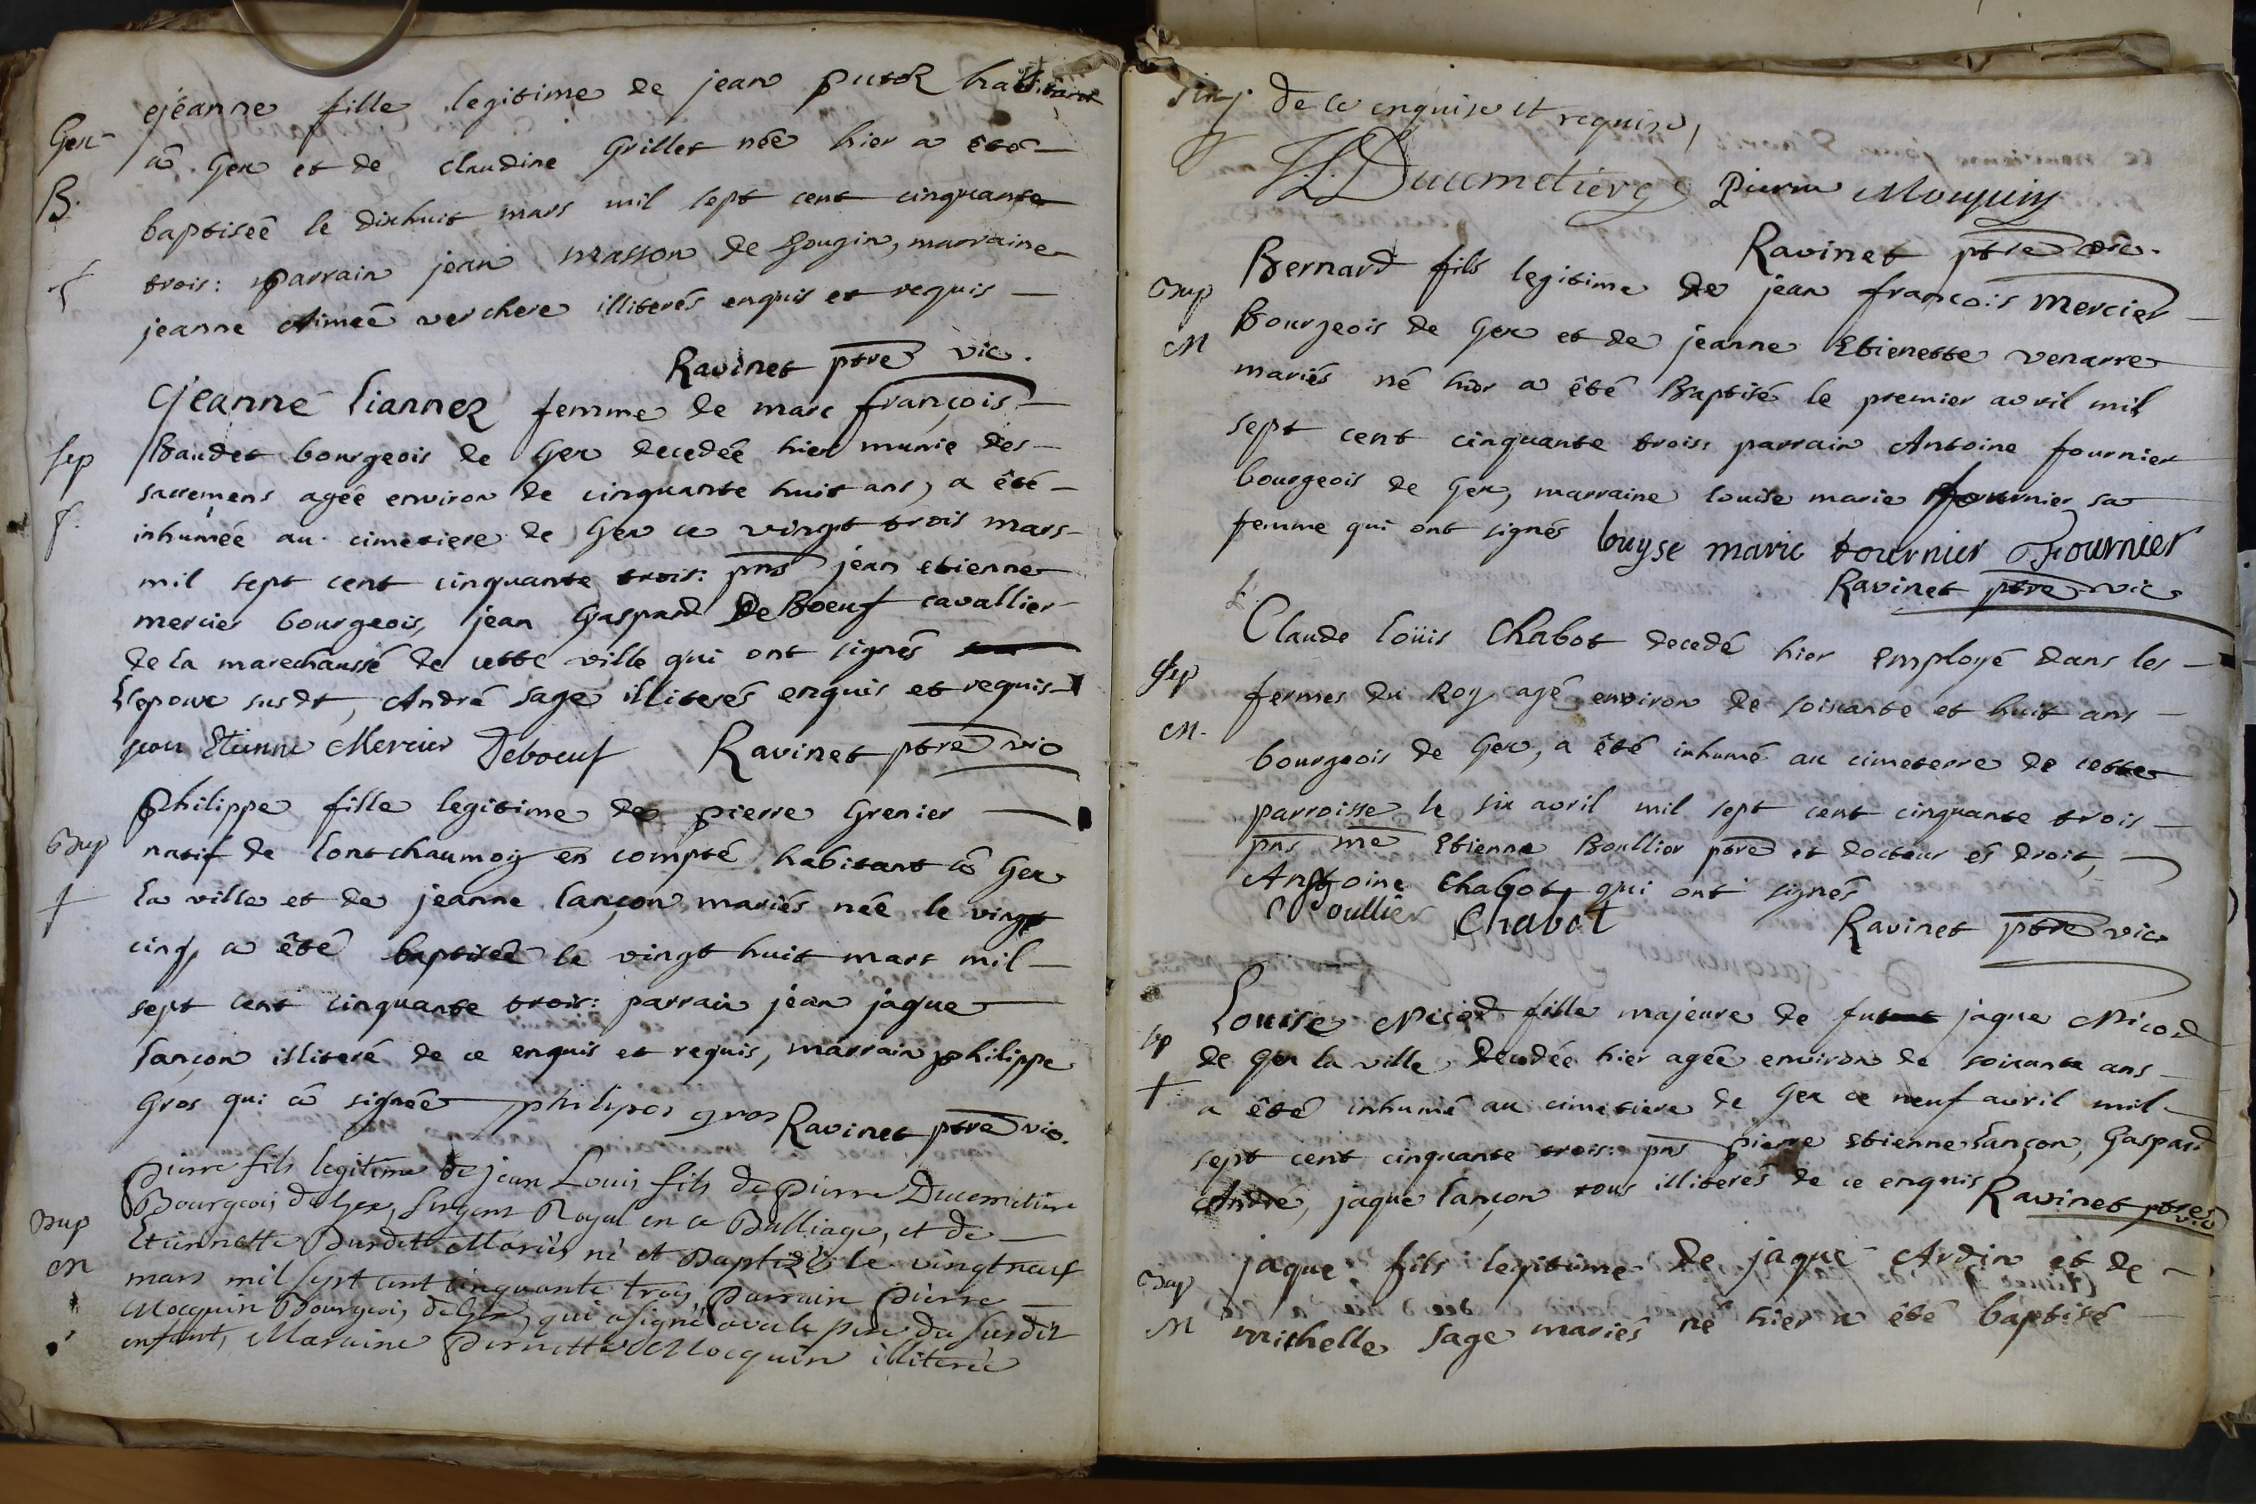 Gex
B.
jeanne fille legitime de jean putod habitant
â Gex et de claudine Grillet née hier a été
baptiseé le dixhuit mars mil sept cent cinquante
trois: parrain jean masson de Gougin, marraine
jeanne Aimeé verchere illiterés enquis et requis
Ravinet ptre vic.
Sep
f.
jeanne Lianner femme de marc françois
Baudet bourgeois de Gex decedée hier munie des
sacremens ageé environ de cinquante huit ans, a été
inhumeé au cimetiere de Gex ce vingt trois mars
mil sept cent cinquante trois: pns jean etienne
mercier bourgeois, jean Gaspard DeBoeuf cavallier
de la marechaussé de cette ville qui ont signés
L'epoux susdt, André Sage illiterés enquis et requis
jean Etienne Mercier Deboeuf Ravinet ptre vic
Bap
f
philippe fille legitime de pierre Grenier
natif de Lontchaumoy en compté habitant â Gex
la ville et de jeanne Lançon mariés née le vingt
cinq, a été baptisée le vingt huit mars mil
sept cent cinquante trois: parrain jean jaque
Lançon illiteré de ce enquis et requis, marrain philippe
Gros qui â signée philipes gros Ravinet ptre vic.
Bap
M
Pierre fils legitime de jean Louis fils de Pierre Ducimetiere
Bourgeois de Gex, sergent Royal en ce Balliage, et de
Etiennette Burdet Mariés né et Baptizé le vingt neuf
mars mil sept cent cinquante trois, Parrain Pierre
Mocquin Bourgeois de Gex, qui a signé avec le pere du susdit
enfant, Maraine Pernette Mocquin illiterée
de ce enquise et requise,
J.L. Ducimetiere pierre Moquin
Ravinet ptre vic.
Bap
M
Bernard fils legitime de jean françois Mercier
Bourgeois de Gex et de jeanne Etienette venarre
mariés né hier a été Baptisé le premier avril mil
sept cent cinquante trois: parrain Antoine fournier
bourgeois de Gex, marraine louise marie fournier sa
femme qui ont signés louyse marie tournier Fournier
Ravinet ptre vic
Sep
M.
Claude Loüis Chabot decedé hier Employé dans les
fermes du Roy agé environ de soixante et huit ans
bourgeois de Gex, a été inhumé au cimeterre de cette
parroisse le six avril mil sept cent cinquante trois
pns me Etienne Boullier ptre et docteur és droit,
Antoine Chabot, qui ont signés
Boullier Chabot Ravinet ptre vic
sep
f
Louise Nicod fille majeure de fut jaque Nicod
de Gex la ville decedée hier ageé environ de soixante ans
a été inhumé au cimetiere de Gex ce neuf avril mil
sept cent cinquante trois: pns pierre Etienne Lançon, Gaspard
André, jaque Lançon tous illiterés de ce enquis Ravinet ptre vic
Bap
M
jaque fils legitime de jaque Ardin et de
michelle Sage mariés né hier a été baptisé